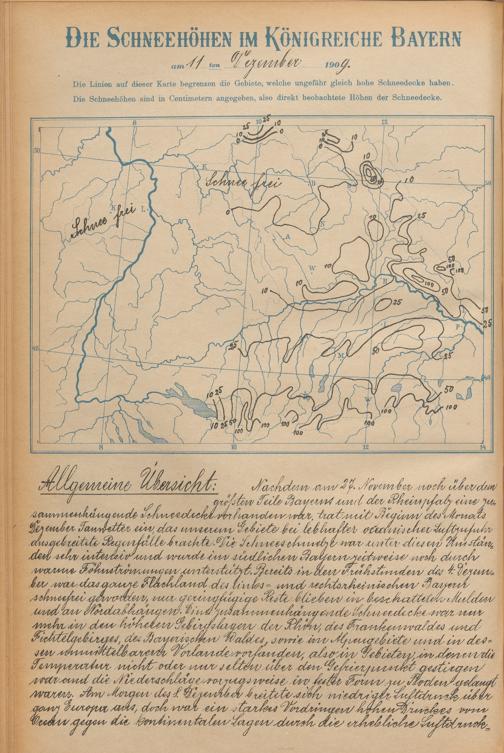 DIE SCHNEEHÖHEN IM KÖNIGREICHE BAYERN
am 11 ten Dezember 1909.
Die Linien auf dieser Karte begrenzen die Gebiete, welche ungefähr gleich hohe Schneedecke haben.
Die Schneehöhen sind in Centimetern angegeben, also direkt beobachtete Höhen der Schneedecke.
Schnee frei
Schnee frei
Allgemeine Übersicht: Nachdem am 27. November noch über dem
größten Teile Bayerns und der Rheinpfalz eine zu-
sammenhängende Schneedecke vorhanden war, trat mit Beginn des Monats
Dezember Tauwetter ein, das unserem Gebiete bei lebhafter oceanischer Luftzufuhr
ausgebreitete Regenfälle brachte. Die Schneeschmelze war unter diesen Umstän-
den sehr intensiv und wurde im südlichen Bayern zeitweise noch durch
warme Föhnströmungen unterstützt. Bereits in den Frühstunden des 4. Dezem-
ber war das ganze Flachland des links- und rechtsrheinischen Bayern
schneefrei geworden, nur geringfügige Reste blieben in beschatteten Mulden
und an Nordabhängen. Eine zusammenhängende Schneedecke war nun-
mehr in den höheren Gebirgslagen der Rhön, des Frankenwaldes und
Fichtelgebirges, des Bayerischen Waldes, sowie im Alpengebiete und in des-
sen unmittelbarem Vorlande vorhanden, also in Gebieten, in denen die
Temperatur nicht oder nur selten über den Gefrierpunkt gestiegen
war und die Niederschläge vorzugsweise in fester Form zu Boden gelangt
waren. Am Morgen des 8. Dezember breitete sich niedriger Luftdruck über
ganz Europa aus, doch war ein starkes Vordringen hohen Druckes vom
Ocean gegen die kontinentalen Lagen durch die erhebliche Luftdruck-